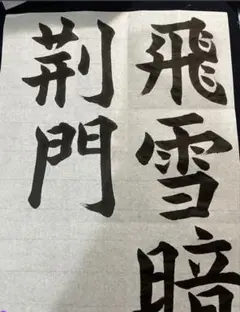 飛雪暗
荆門